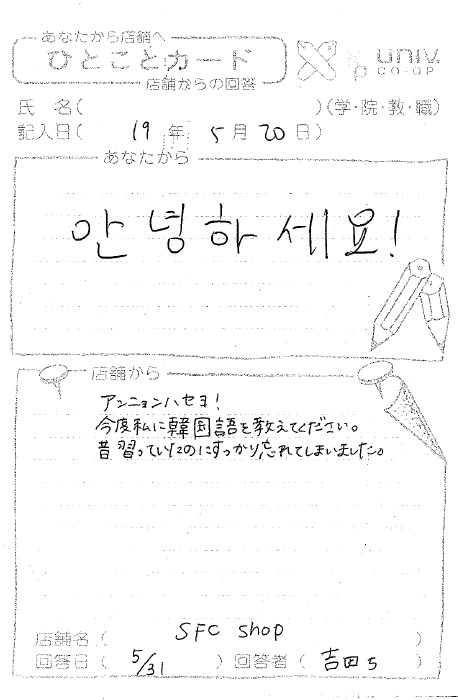 あなたから店舗へ
ひとことカード
店舗からの回答
univ.
CO-OP
氏 名( )(学・院・教・職)
記入日( 19 年 5 月 20 日)
あなたから
안녕하세요!
店舗から
アンニョンハセヨ!
今度私に韓国語を教えてください。
昔習っていたのにすっかり忘れてしまいました。
店舗名( SFC shop )
回答日( 5/31 ) 回答者( 吉田ち )